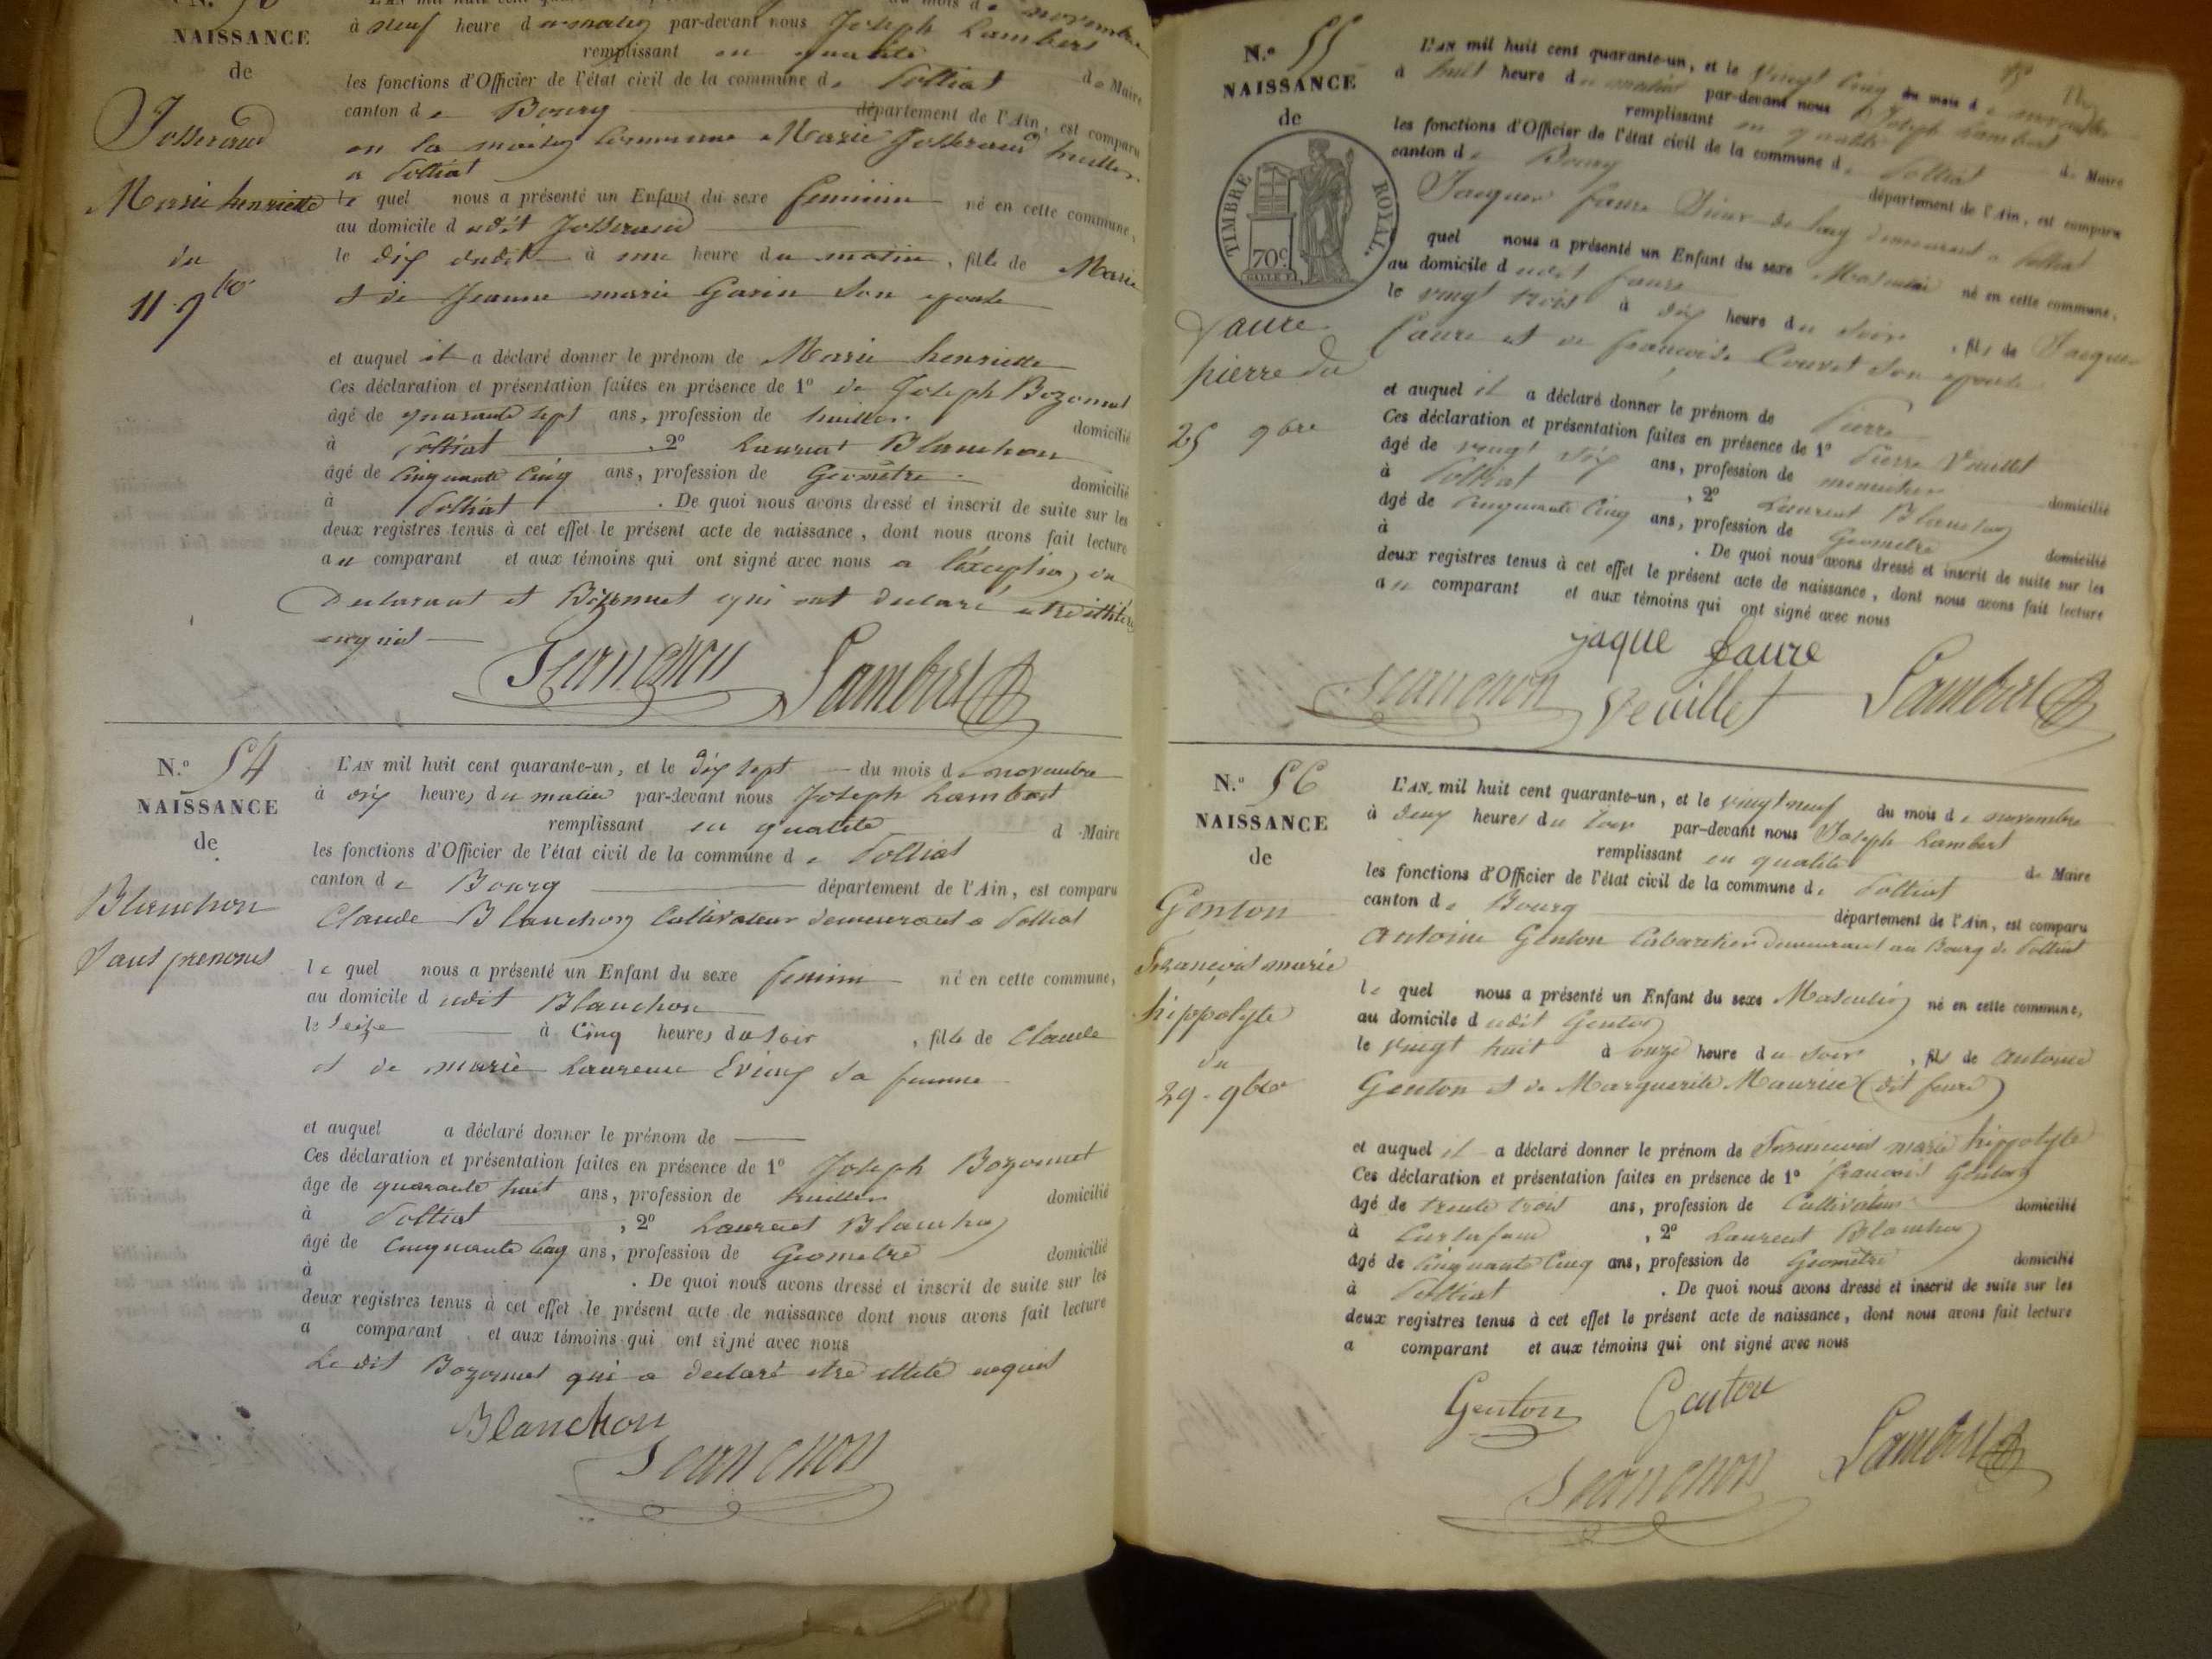 NAISSANCE
de
Josserand
Marie henriette
du
11. 9bre
à neuf heure du matin par-devant nous Joseph Lambert
remplissant en qualité de Maire
les fonctions d'Officier de l'état civil de la commune de Polliat
canton de Bourg département de l'Ain, est comparu
en la maison commune Marie Josserand huiller
a Polliat
le quel nous a présenté un Enfant du sexe feminin né en cette commune,
au domicile dudit Josserand
le dix dudit à une heure du matin, fille de Marie
et de Jeanne marie Garin son epouse
et auquel il a déclaré donner le prénom de Marie henriette
Ces déclaration et présentation faites en présence de 1º de Joseph Bozonnet
âgé de quarante sept ans, profession de huiller domicilié
à Polliat, 2º Laurent Blanchon
âgé de Cinquante Cinq ans, profession de Geomètre domicilié
à Polliat. De quoi nous avons dressé et inscrit de suite sur les
deux registres tenus à cet effet le présent acte de naissance, dont nous avons fait lecture
au comparant et aux témoins qui ont signé avec nous a l'exception du
Declarant et Bozonnet qui ont declaré
enquis
Lambert
N.º 54
NAISSANCE
de
Blanchon
Sans prenoms
L'AN mil huit cent quarante-un, et le dix sept du mois de novembre
à dix heures du matin par-devant nous Joseph Lambert
remplissant en qualité d Maire
les fonctions d'Officier de l'état civil de la commune de Polliat
canton de Bourg département de l'Ain, est comparu
Claude Blanchon Cultivateur demeurant a Polliat
le quel nous a présenté un Enfant du sexe feminin né en cette commune,
au domicile dudit Blanchon
le Seize à Cinq heures du soir, fille de Claude
et de marie Laurence sa femme
et auquel a déclaré donner le prénom de
Ces déclaration et présentation faites en présence de 1º Joseph Bozonnet
âge de quarante huit ans, profession de huiller domicilié
à Polliat, 2º Laurent Blanchon
âgé de Cinquante Cinq ans, profession de Geometre domicilié
à . De quoi nous avons dressé et inscrit de suite sur les
deux registres tenus à cet effet le présent acte de naissance dont nous avons fait lecture
a comparant et aux témoins qui ont signé avec nous
Le dit Bozonnet qui a declaré etre illité enquis
Blanchon
N.º 55
NAISSANCE
de
TIMBRE ROYAL.
70c.
faure
pierre du
25 9bre
L'AN mil huit cent quarante-un, et le vingt cinq du mois de novembre
à huit heure du matin par-devant nous Joseph Lambert
remplissant en qualité de Maire
les fonctions d'Officier de l'état civil de la commune de Polliat
canton de Bourg département de l'Ain, est comparu
Jacques faure Sieur de long demeurant a Polliat
quel nous a présenté un Enfant du sexe Masculin né en cette commune,
au domicile dudit faure
le vingt trois à dix heure du soir, fils de Jacques
faure et de françoise Couvet son epouse
et auquel il a déclaré donner le prénom de Pierre
Ces déclaration et présentation faites en présence de 1º Pierre Veuillet
âgé de vingt six ans, profession de meunier domicilié
à Polliat, 2º Laurent Blanchon
âgé de Cinquante Cinq ans, profession de Geometre domicilié
à . De quoi nous avons dressé et inscrit de suite sur les
deux registres tenus à cet effet le présent acte de naissance, dont nous avons fait lecture
au comparant et aux témoins qui ont signé avec nous
jaque faure
veuillet Lambert
N.º 56
NAISSANCE
de
Genton
François marie
hippolyte
du
29. 9bre
L'AN mil huit cent quarante-un, et le vingt neuf du mois de novembre
à deux heures du soir par-devant nous Joseph Lambert
remplissant en qualité de Maire
les fonctions d'Officier de l'état civil de la commune de Polliat
canton de Bourg département de l'Ain, est comparu
antoine Genton Cabaretier demeurant au Bourg de Polliat
le quel nous a présenté un Enfant du sexe Masculin né en cette commune,
au domicile dudit Genton
le vingt huit à onze heure du soir, fils de antoine
Genton et de Marguerite Maurice (dit feure)
et auquel il a déclaré donner le prénom de François marie hippolyte
Ces déclaration et présentation faites en présence de 1º françois Genton
âgé de trente trois ans, profession de Cultivateur domicilié
à, 2º Laurent Blanchon
âgé de Cinquante Cinq ans, profession de Geomètre domicilié
à Polliat. De quoi nous avons dressé et inscrit de suite sur les
deux registres tenus à cet effet le présent acte de naissance, dont nous avons fait lecture
a comparant et aux témoins qui ont signé avec nous
Genton Genton
Lambert